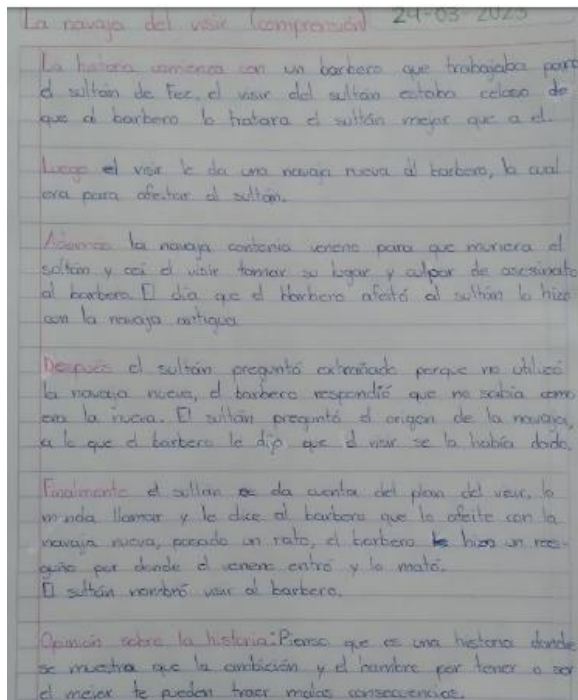 La navaja del visir (comprensión) 24-03-2023
La historia comienza con un barbero que trabajaba para
el sultán de Fez, el visir del sultán estaba celoso de
que al barbero lo tratara el sultán mejor que a el.
Luego el visir le da una navaja nueva al barbero, la cual
era para afeitar al sultán.
Además la navaja contenia veneno para que muriera el
sultán y así el visir tomar su lugar y culpar de asesinato
al barbero. El día que el barbero afeitó al sultán lo hizo
con la navaja antigua
Después el sultán preguntó extrañado porque no utilizó
la navaja nueva, el barbero respondió que no sabia como
era la nueva. El sultán preguntó el origen de la navaja,
a lo que el barbero le dijo que el visir se la había dado.
Finalmente el sultán se da cuenta del plan del visir, lo
manda llamar y le dice al barbero que lo afeite con la
navaja nueva, pasado un rato, el barbero le hizo un ras-
guño por donde el veneno entró y lo mató.
El sultán nombró visir al barbero.
Opinión sobre la historia: Pienso que es una historia donde
se muestra que la ambición y el hambre por tener o ser
el mejor te pueden traer malas consecuencias.